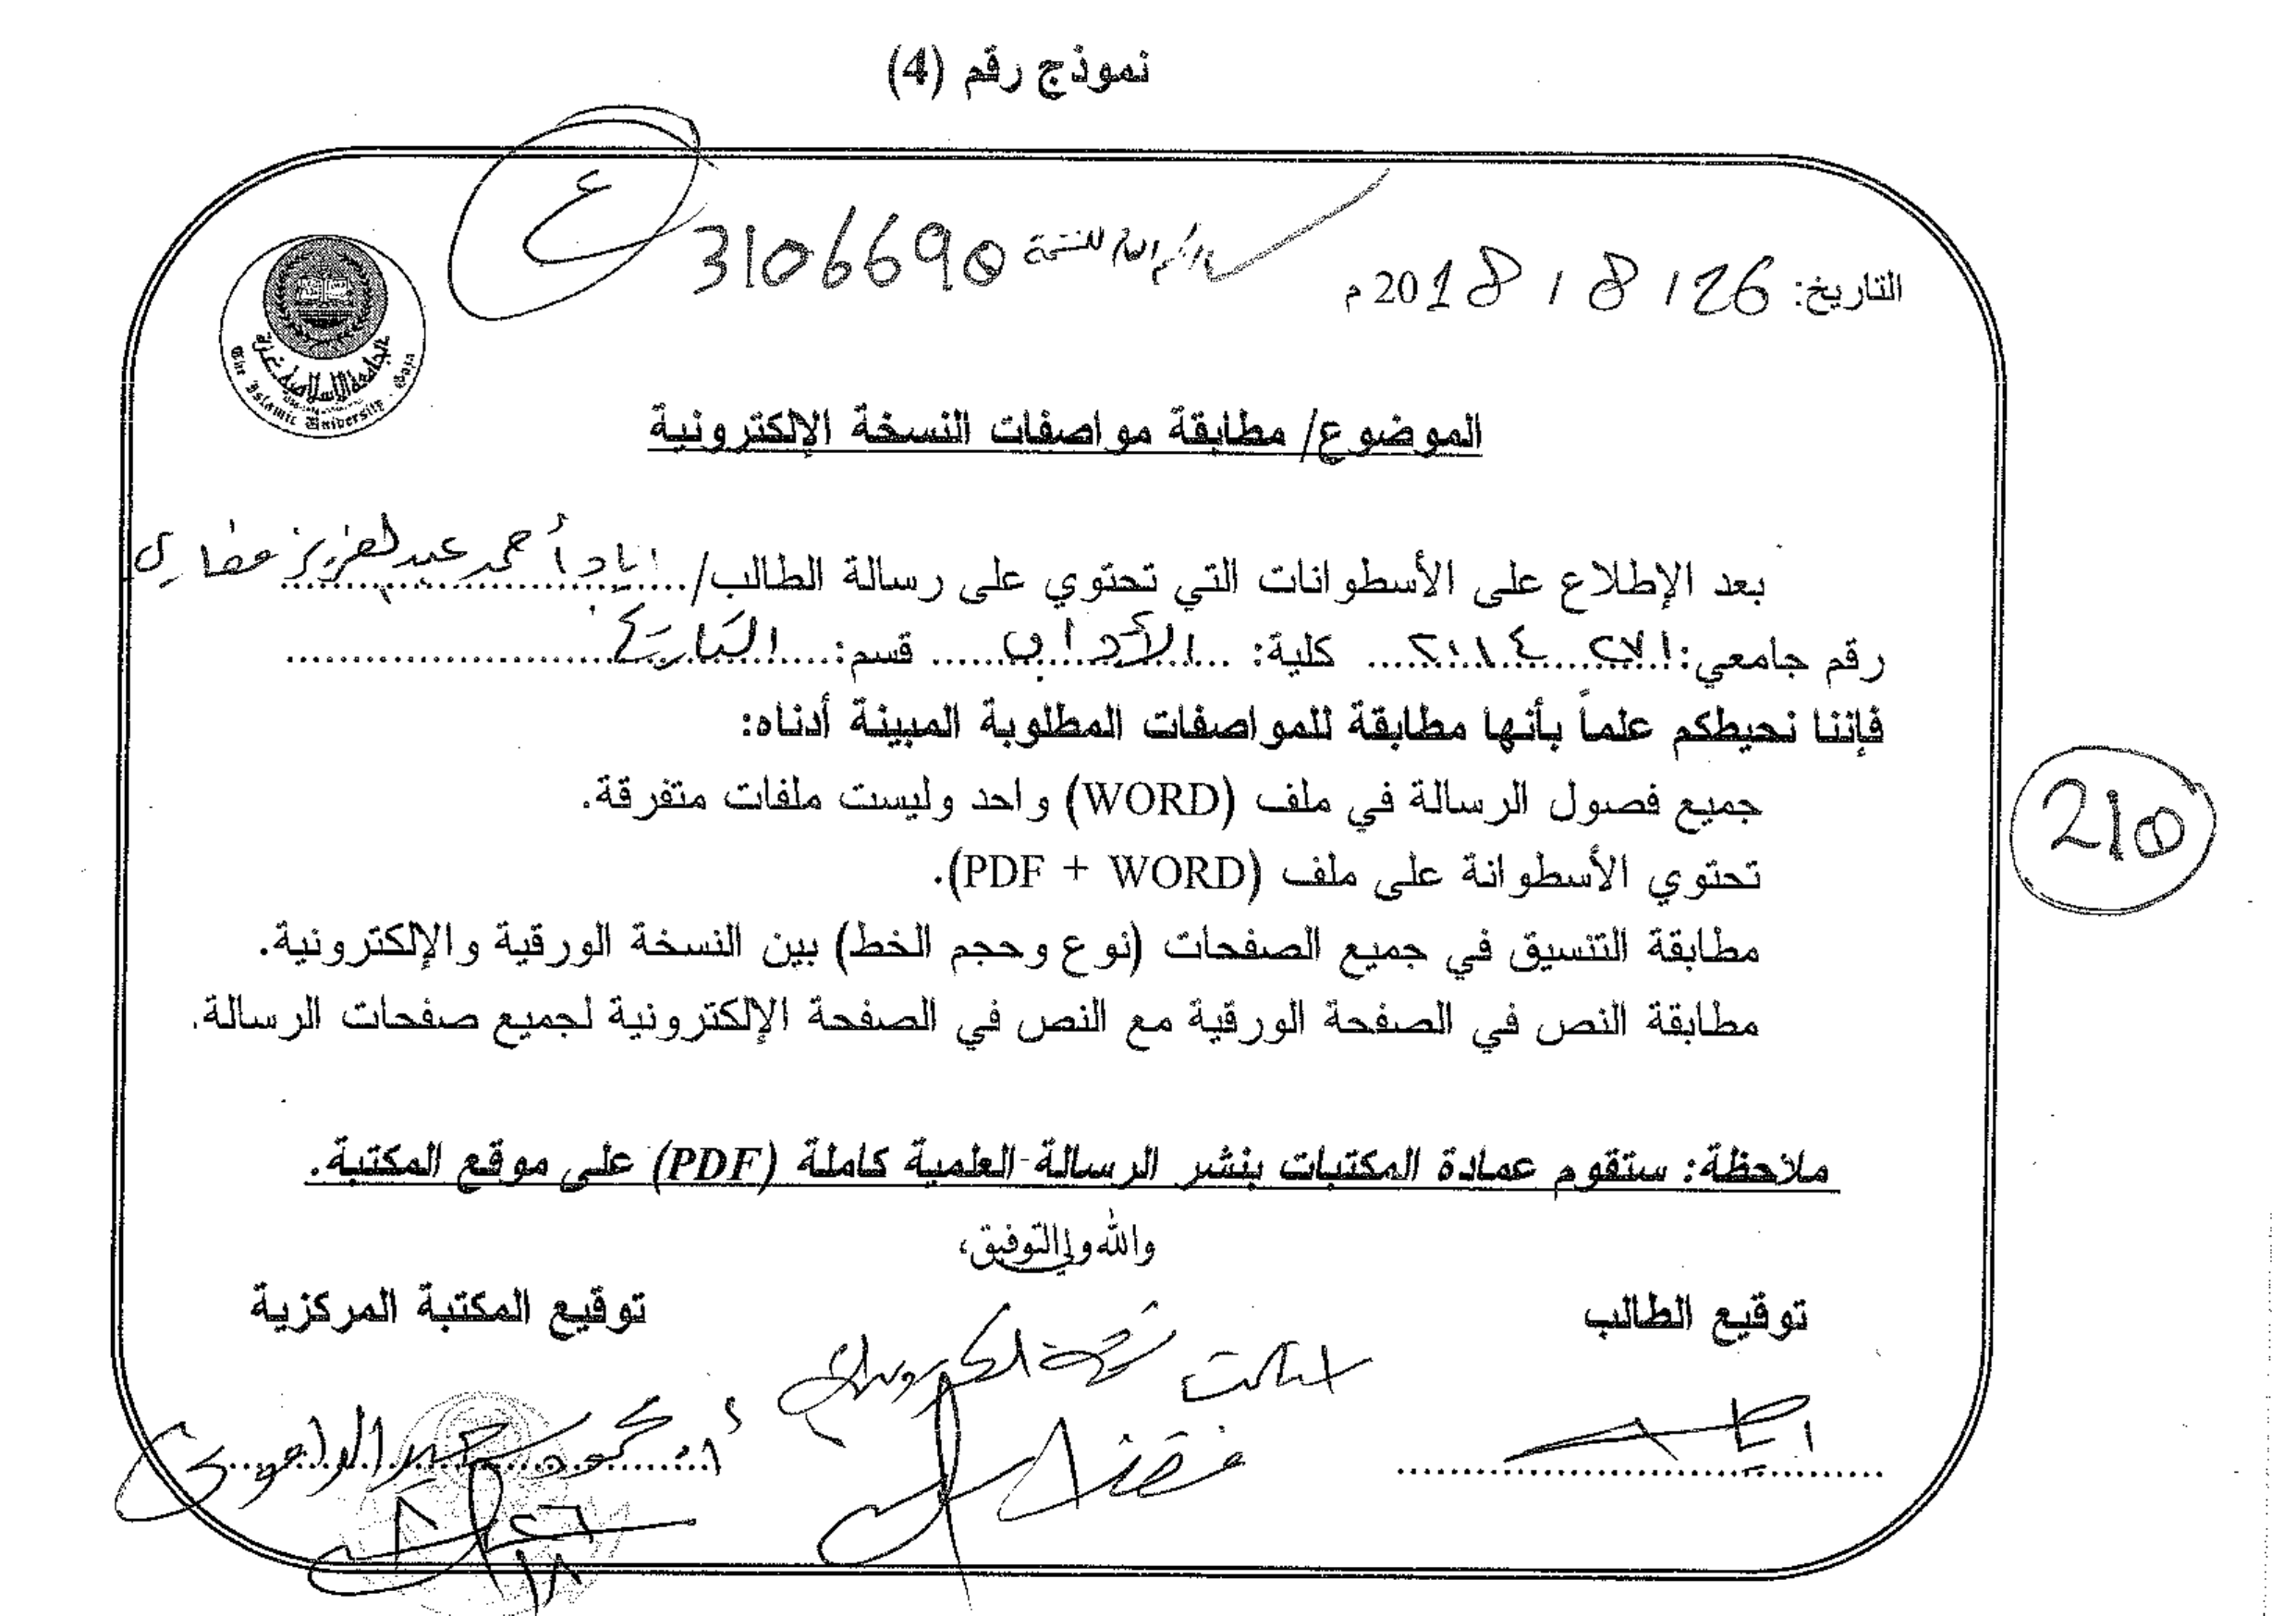 نموذج رقم (4)
ع
3106690
التاريخ: 26 / 8 / 2018 م
الجامعة الإسلامية غزة
The Islamic University - Gaza
الموضوع/ مطابقة مواصفات النسخة الإلكترونية
بعد الإطلاع على الأسطوانات التي تحتوي على رسالة الطالب/ اياد أحمد عبدالعزيز
رقم جامعي: كلية: الأداب قسم: التاريخ
فإننا نحيطكم علماً بأنها مطابقة للمواصفات المطلوبة المبينة أدناه:
جميع فصول الرسالة في ملف (WORD) واحد وليست ملفات متفرقة.
210
تحتوي الأسطوانة على ملف (PDF + WORD).
مطابقة التنسيق في جميع الصفحات (نوع وحجم الخط) بين النسخة الورقية والإلكترونية.
مطابقة النص في الصفحة الورقية مع النص في الصفحة الإلكترونية لجميع صفحات الرسالة.
ملاحظة: ستقوم عمادة المكتبات بنشر الرسالة العلمية كاملة (PDF) على موقع المكتبة.
والله ولي التوفيق،
توقيع الطالب
توقيع المكتبة المركزية
استلمت نسخة الكترونية
اياد